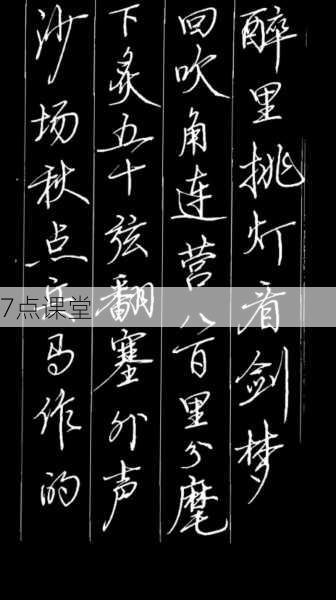 醉里挑灯看剑梦
回吹角连营八百里分麾
下炙五十弦翻塞外声
沙场秋点兵马作的
7点课堂